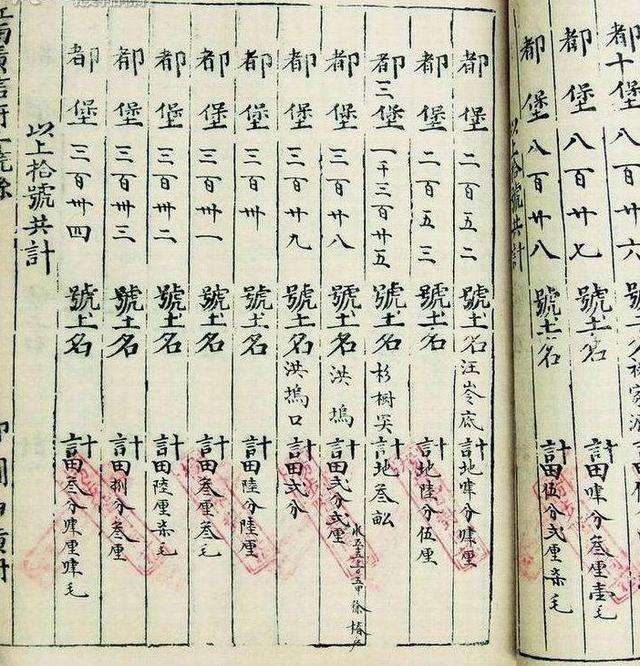 都十堡八百廿六
都堡八百廿七號土名計田肆分叁厘壹毛
都堡八百廿八號土名計田伍分弍厘柒毛
以上拾號共計
都堡二百五二號土名汪岺底計地肆分肆厘
都堡二百五三號土名計地陸分伍厘
都三堡一千三百廿五號土名杉樹突計地叁畝
都堡三百廿八號土名洪塢計田弍分弍厘
都堡三百廿九號土名洪塢口計田弍分
都堡三百卅號土名計田陸分陸厘
都堡三百卅一號土名計田叁厘叁毛
都堡三百卅二號土名計田陸厘柒毛
都堡三百卅三號土名計田捌分叁厘
都堡三百卅四號土名計田叁分肆厘肆毛
以上拾號共計